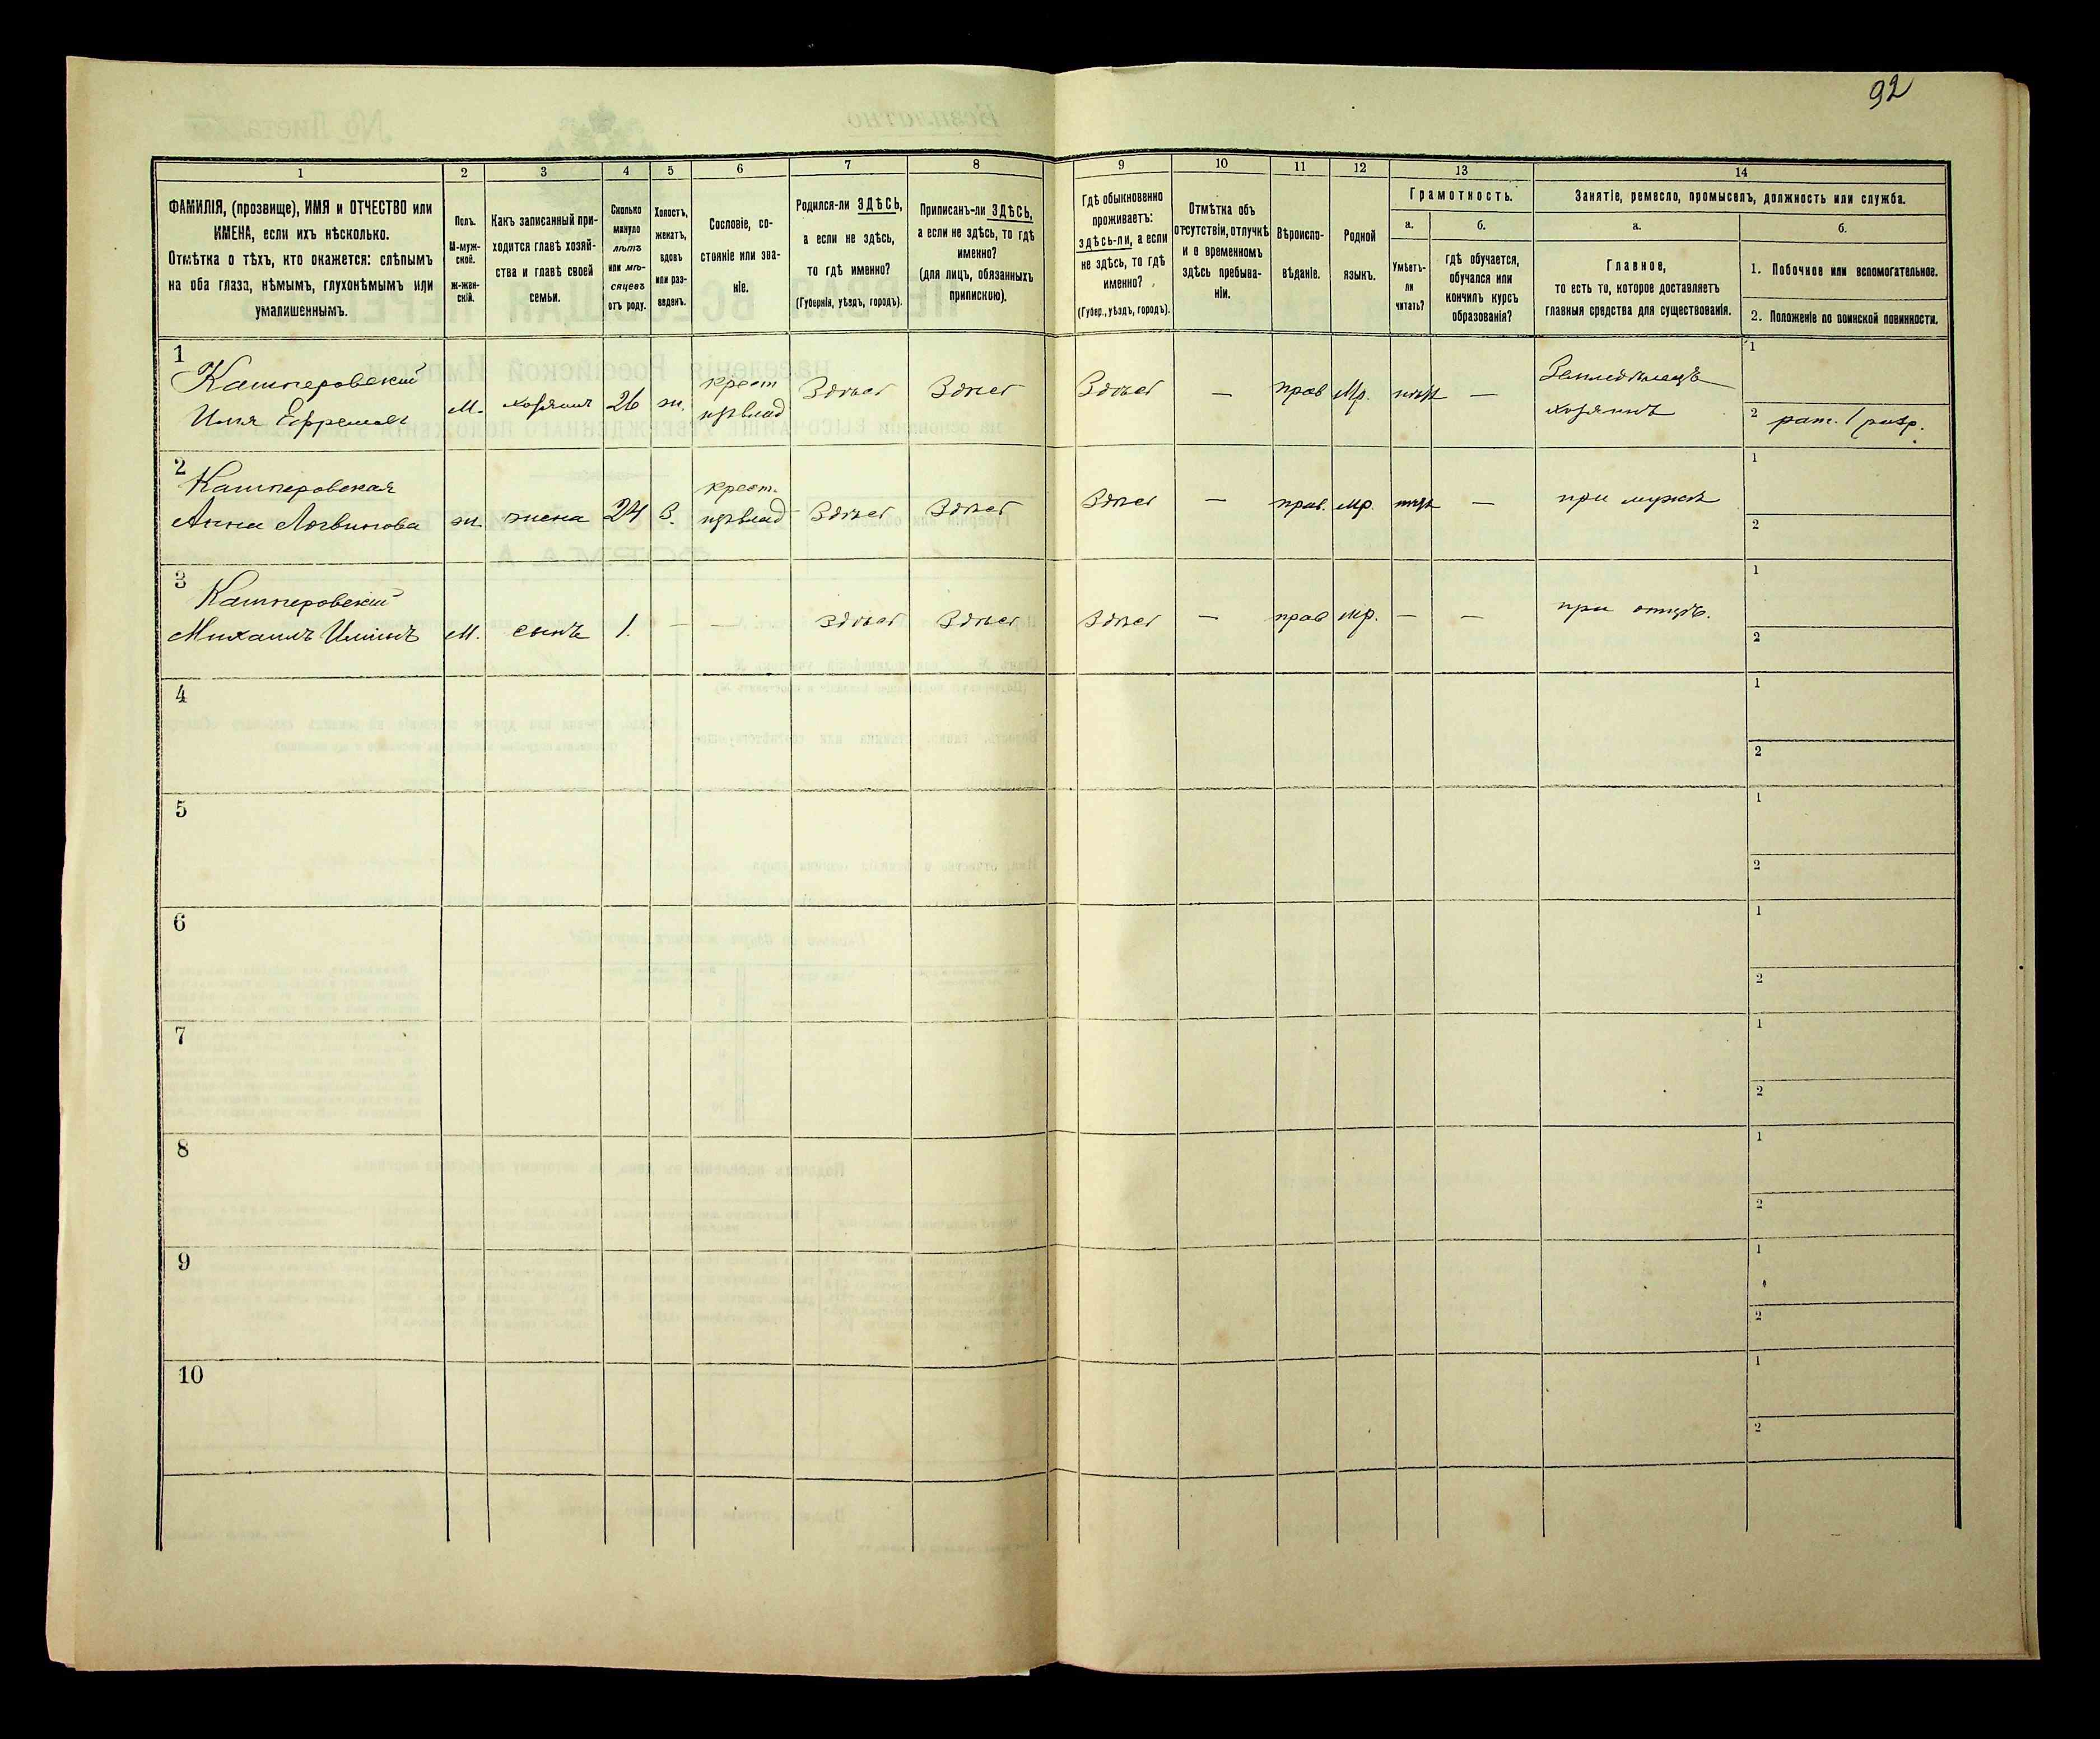 92
1 2 3 4 5 6 7 8 9 10 11 12 13 14
ФАМИЛІЯ, (прозвище), ИМЯ и ОТЧЕСТВО или
ИМЕНА, если ихъ нѣсколько.
Отмѣтка о тѣхъ, кто окажется: слѣпымъ
на оба глаза, нѣмымъ, глухонѣмымъ или
умалишеннымъ.
Полъ.
М-муж-
ской.
ж-жен-
скій.
Какъ записанный при-
ходится главѣ хозяй-
ства и главѣ своей
семьи.
Сколько
минуло
лѣтъ
или мѣ-
сяцевъ
отъ роду.
Холостъ,
женатъ,
вдовъ
или раз-
веденъ.
Сословіе, со-
стояніе или зва-
ніе.
Родился-ли ЗДѢСЬ,
а если не здѣсь,
то гдѣ именно?
(Губернія, уѣздъ, городъ).
Приписанъ-ли ЗДѢСЬ,
а если не здѣсь, то гдѣ
именно?
(для лицъ, обязанныхъ
припискою).
Гдѣ обыкновенно
проживаетъ:
здѣсь-ли, а если
не здѣсь, то гдѣ
именно?
(Губер., уѣздъ, городъ).
Отмѣтка объ
отсутствіи, отлучкѣ
и о временномъ
здѣсь пребыва-
ніи.
Вѣроиспо-
вѣданіе.
Родной
языкъ.
Грамотность.
а.
Умѣетъ-
ли
читать?
б.
гдѣ обучается,
обучался или
кончилъ курсъ
образованія?
Занятіе, ремесло, промыселъ, должность или служба.
а.
Главное,
то есть то, которое доставляетъ
главныя средства для существованія.
б.
1. Побочное или вспомогательное.
2. Положеніе по воинской повинности.
1
Кашперовский
Илья Ефремовъ
М.
хозяинъ
26
ж.
крест
Здѣсь
Здѣсь
Здѣсь
—
прав
Мр.
нѣтъ
—
Земледѣлецъ
хозяинъ
1
2 рат. 1 разр.
2
Кашперовская
Анна Логвинова
ж.
жена
24
З.
крест.
Здѣсь
Здѣсь
Здѣсь
—
прав.
Мр.
нѣтъ
—
при мужѣ
1
2
3
Кашперовский
Михаилъ Ильинъ
М.
сынъ
1.
—
—
Здѣсь
Здѣсь
Здѣсь
—
прав
Мр.
—
—
при отцѣ.
1
2
4
1
2
5
1
2
6
1
2
7
1
2
8
1
2
9
1
2
10
1
2